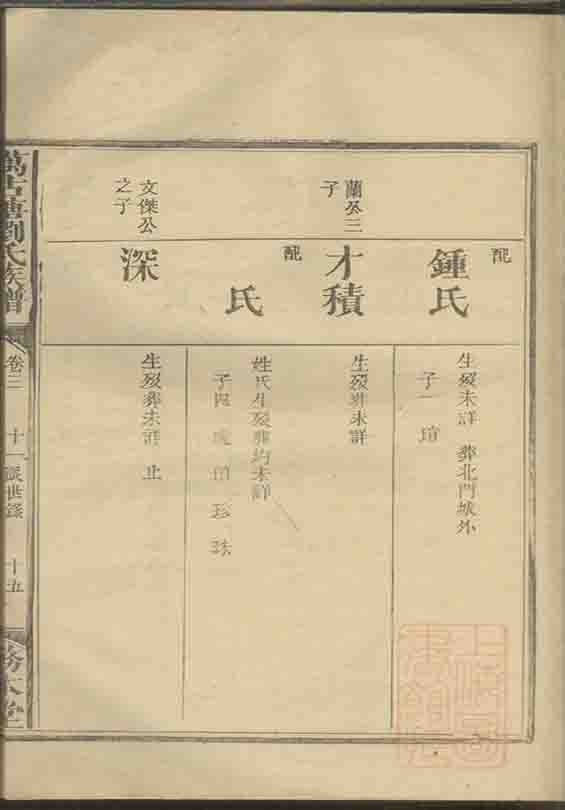 配
鍾氏
生歿未詳 葬北門城外
子一 瑄
蘭公三
子
才積
生歿葬未詳
配
氏
姓氏生歿葬均未詳
子四 珍 珠
文傑公
之子
深
生歿葬未詳 止
萬古塘劉氏族譜
卷三 十一派世錄 十五
務本堂